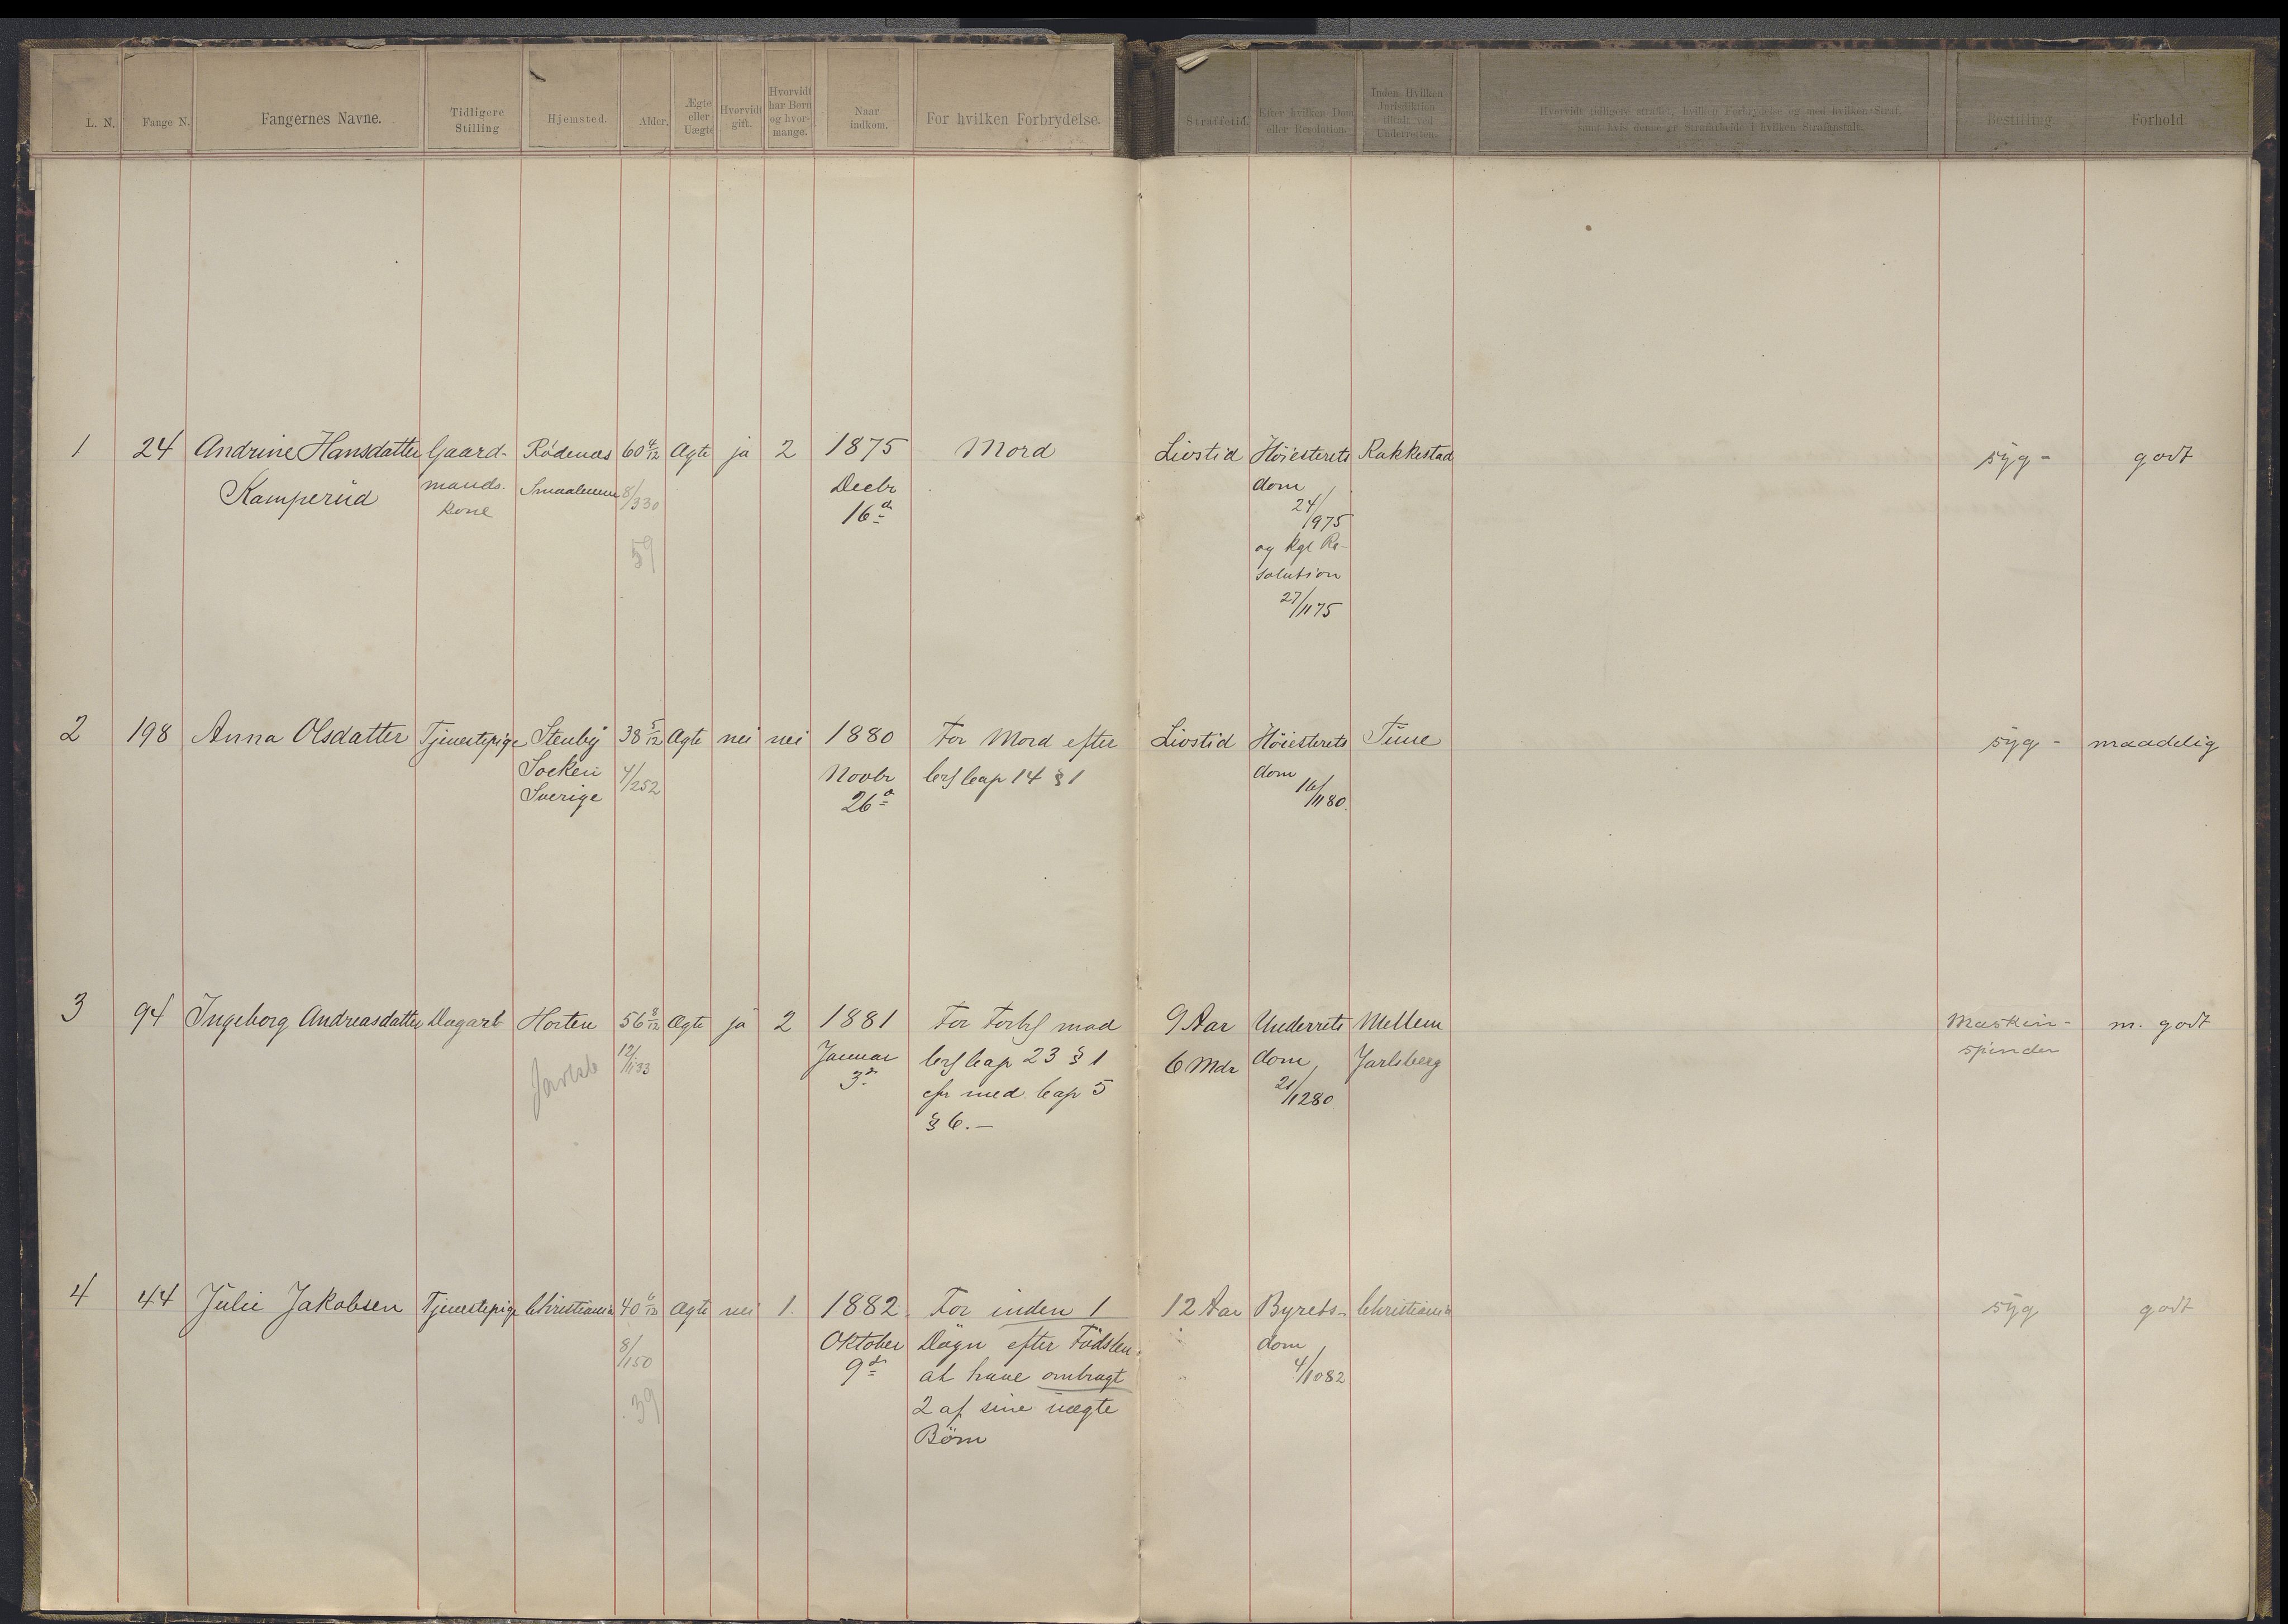 L. N.
Fange N.
Fangernes Navne.
Tidligere
Stilling
Hjemsted.
Alder.
Ægte
eller
Uægte
Hvorvidt
gift.
Hvorvidt
har Børn
og hvor-
mange.
Naar
indkom.
For hvilken Forbrydelse.
Straffetid.
Efter hvilken Dom
eller Resolution.
Inden Hvilken
Jurisdiktion
tiltalt ved
Underretten.
Hvorvidt tidligere straffet, hvilken Forbrydelse og med hvilken Straf,
samt hvis denne er Strafarbeide i hvilken Strafanstalt.
Bestilling
Forhold
1 24 Andrine Hansdatter Gaard- Rødenæs 60 4/12 Ægte ja 2 1875 Mord Livstid Høiesterets Rakkestad syg - godt
Kamperud mands- Smaalenene 8/330 Decbr dom
kone 16d 24/975
59 og Kgl Re-
solution
27/1175
2 198 Anna Olsdatter Tjenestepige Stenby 38 5/12 Ægte nei nei 1880 For Mord efter Livstid Høiesterets Tune syg - maadelig
Socken 4/252 Novbr Crl Cap 14 § 1 dom
Sverige 26d 16/1180.
3 94 Ingeborg Andreasdatter Dagarb Horten 56 8/12 Ægte ja 2 1881 For Forbr mod 9 Aar Underrets Mellem Maskin- m. godt
Jarlsb 12/133 Januar Crl Cap 23 § 1 6 Mdr dom Jarlsberg spinder
3d cfr med Cap 5 21/1280
§ 6. -
4 44 Julie Jakobsen Tjenestepige Christiania Ægte nei 1. 1882 For inden 1 12 Aar Byrets- Christiania syg godt
8/150 Oktober Døgn efter Fødslen dom
9d at have ombragt 4/1082
39 2 af sine uægte
Børn